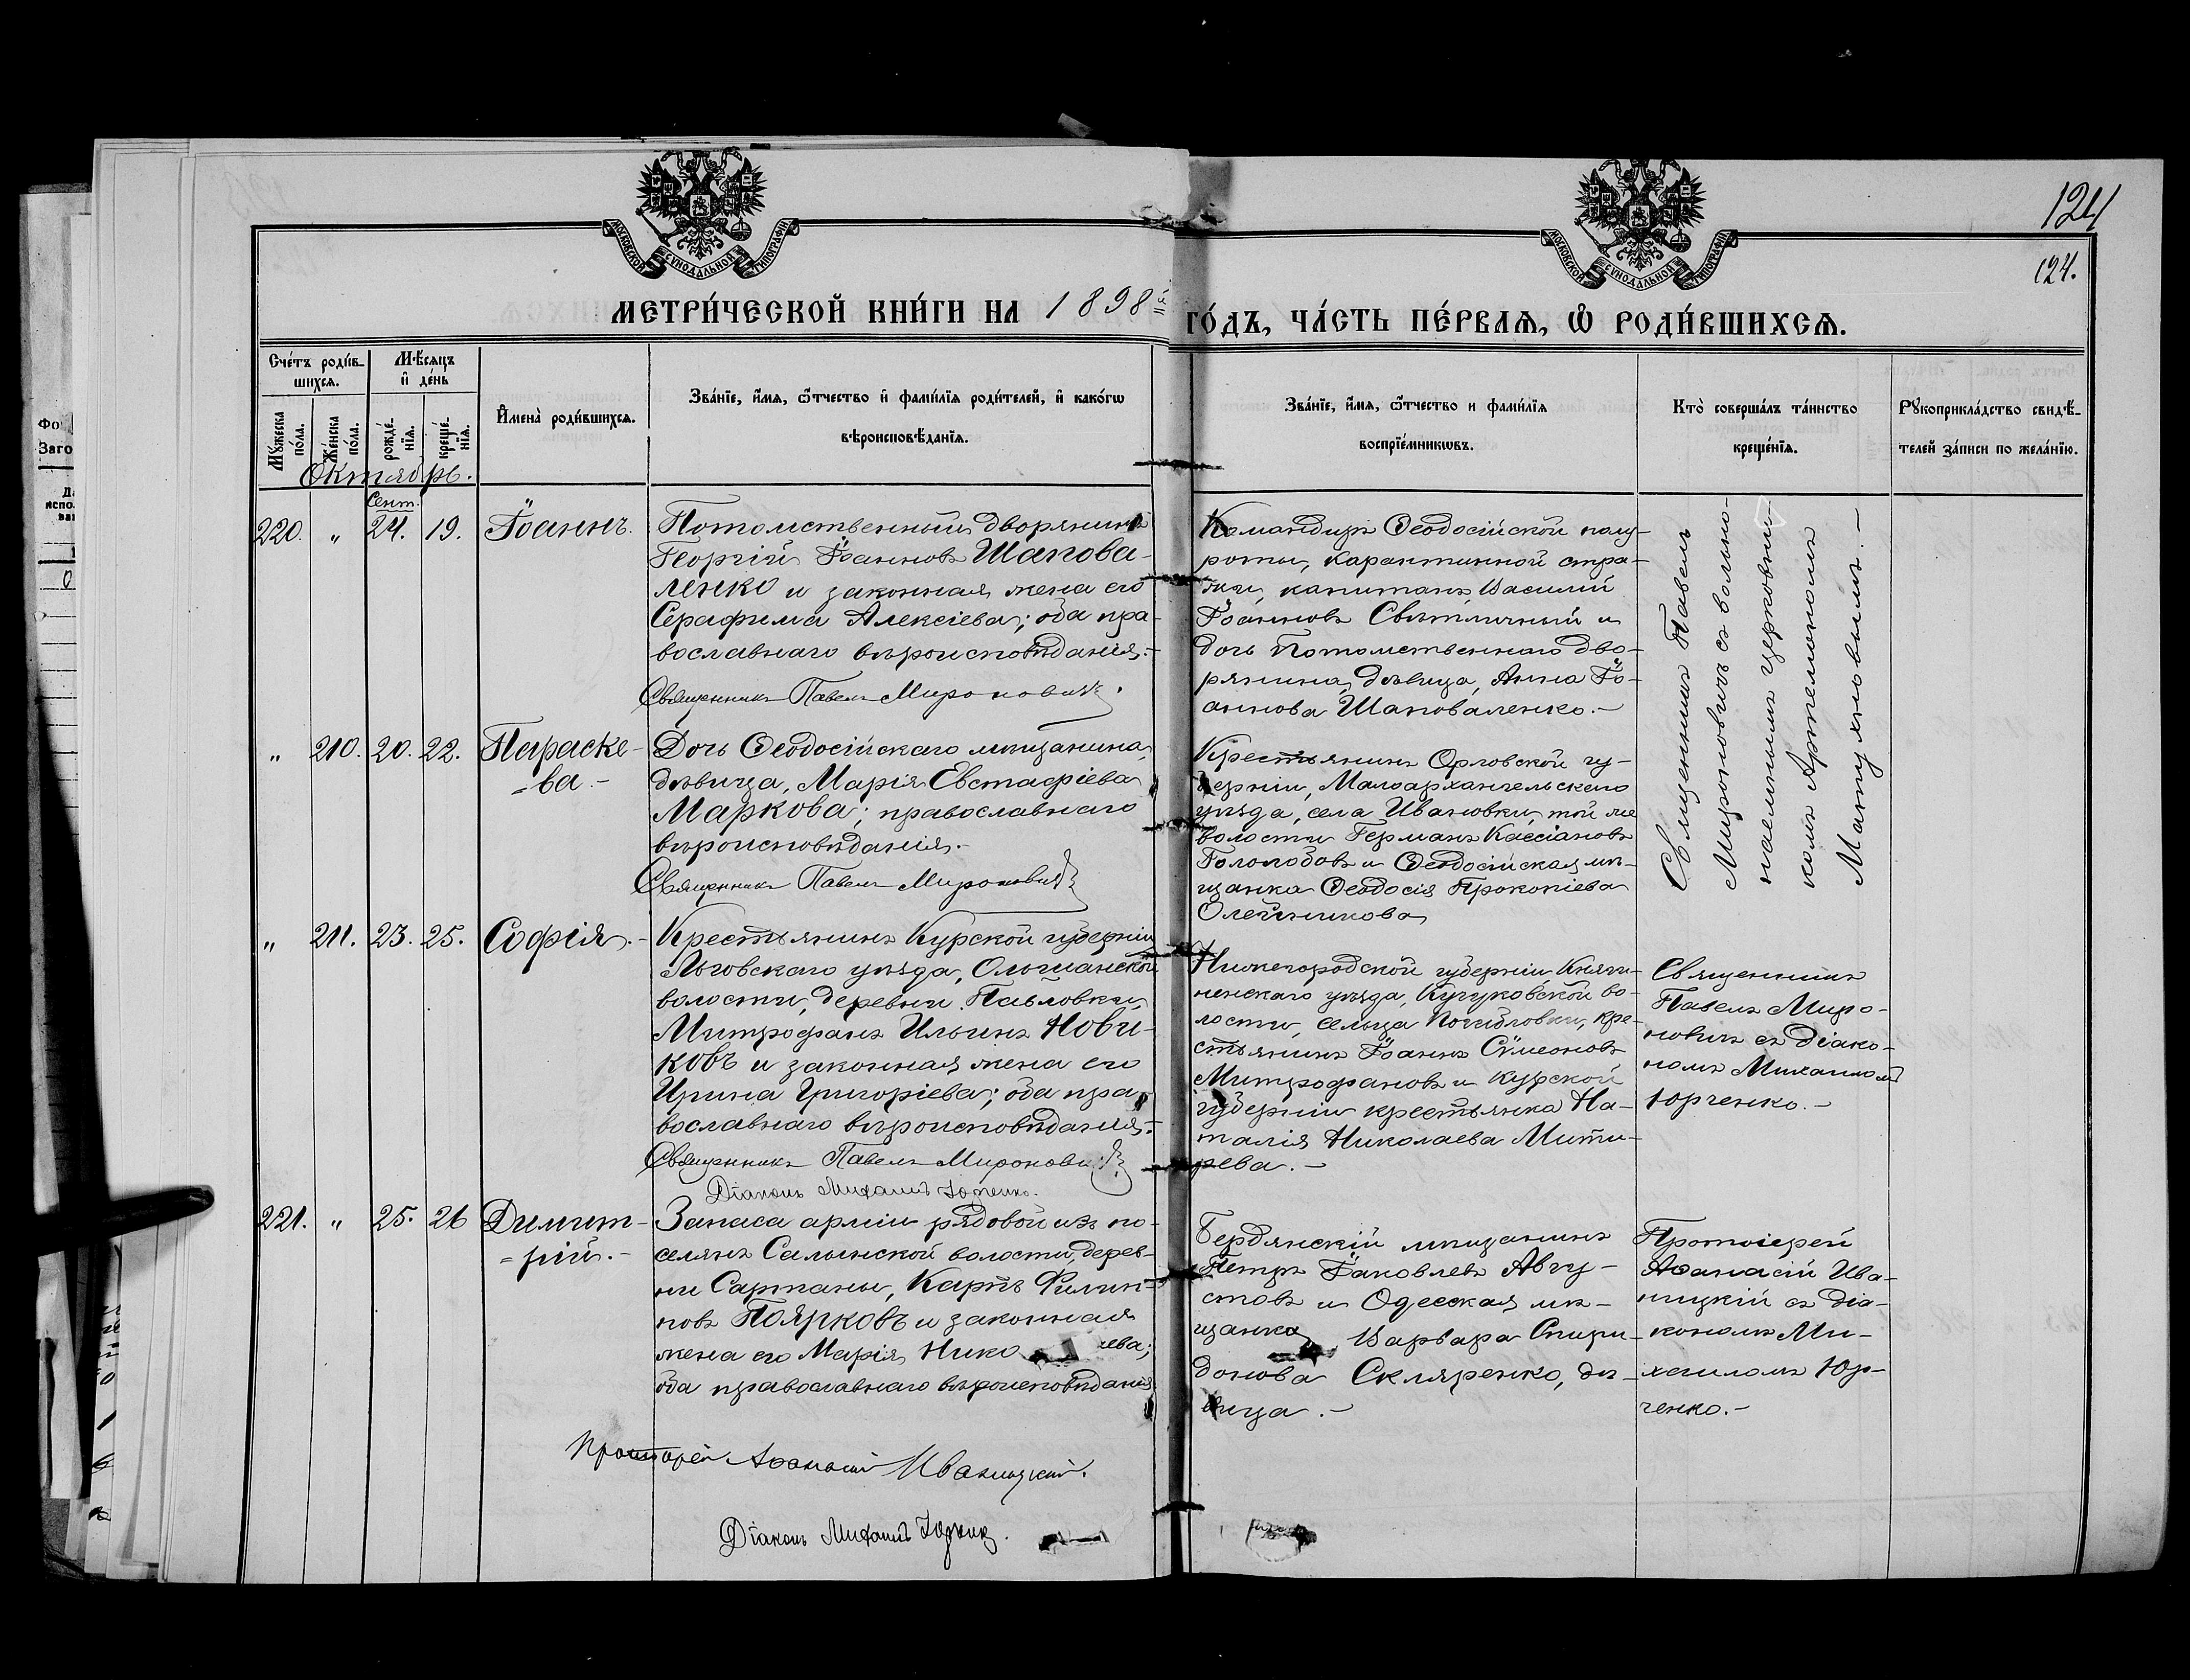 124
124.
МОСКОВСКОЙ СѴНОДАЛЬНОЙ ТИПОГРАФІИ
МОСКОВСКОЙ СѴНОДАЛЬНОЙ ТИПОГРАФІИ
МЕТРИ́ЧЕСКОЙ КНИ́ГИ НА 1898й ГО́ДЪ, ЧА́СТЬ ПЕ́РВАѦ, Ѡ҆ РОДИ́ВШИХСѦ.
Сче́тъ роди́в-
шихся.
Мꙋ́жеска
по́ла.
Же́нска
по́ла.
Мѣ́сяцъ
и҆ де́нь
рожде́-
нїя.
креще́-
нїя.
И҆мена̀ роди́вшихся.
Зва́нїе, и҆́мя, ѻ҆́тчество и҆ фами́лїя роди́телей, и҆ како́гѡ
вѣроисповѣ́данїя.
Зва́нїе, и҆́мя, ѻ҆́тчество и фами́лїя
воспрїе́мникѡвъ.
Кто̀ соверша́лъ та́инство
креще́нїя.
Рꙋкоприкла́дство свидѣ́-
телей за́писи по жела́нїю.
Октябрь.
Сент.
220. „ 24. 19. Іоаннъ.
Потомственный дворянинъ
Георгій Іоанновъ Шапова-
ленко и законная жена его
Серафима Алексіева; оба пра-
вославнаго вѣроисповѣданія.-
Священникъ Павелъ Мироновичъ.
Командиръ Ѳеодосійской полу-
роты, карантинной стра-
жи, капитанъ Василій
Іоанновъ Свѣтличный и
дочь Потомственнаго дво-
рянина, дѣвица, Анна Іо-
аннова Шаповаленко.-
Священникъ Павелъ
Мироновичъ съ вольно-
наемнымъ церковни-
комъ Артемономъ
Матуяновымъ.-
„ 210. 20. 22. Параске-
-ва.-
Дочь Ѳеодосійскаго мѣщанина,
дѣвица, Марія Евстафіева
Маркова; православнаго
вѣроисповѣданія.-
Священникъ Павелъ Мироновичъ
Крестьянинъ Орловской гу-
берніи, Малоархангельскаго
уѣзда, села Ивановки, той же
волости Германъ Кассіановъ
Гололобовъ и Ѳеодосійская мѣ-
щанка Ѳеодосія Прокопіева
Олейникова
„ 211. 23. 25. Софія.-
Крестьянинъ Курской губерніи
Льговскаго уѣзда, Ольшанской
волости, деревни Павловки,
Митрофанъ Ильинъ Нови-
ковъ и законная жена его
Ирина Григоріева; оба пра-
вославнаго вѣроисповѣданія.-
Священникъ Павелъ Мироновичъ
Діаконъ Михаилъ Юрченко.
Нижегородской губерніи Княги-
нинскаго уѣзда, во-
лости, сельца кре-
стьянинъ Іоаннъ Сѷмеоновъ
Митрофановъ и Курской
губерніи крестьянка На-
талія Николаева Мити-
рева.-
Священникъ
Павелъ Миро-
новичъ съ діако-
номъ Михаиломъ
Юрченко.-
221. „ 25. 26 Димит-
-рій.-
Запаса арміи рядовой изъ по-
селянъ волости, дерев-
ни Сартаны, Карпъ Филип-
повъ Поярковъ и законная
жена его Марія Нико ева;
оба православнаго вѣроисповѣданія
Протоіерей Аѳанасій Иваницкій.
Діаконъ Михаилъ Юрченко.
Бердянскій мѣщанинъ
Петръ Іаковлевъ Авгу-
стовъ и Одесская мѣ-
щанка Варвара Спири-
донова Скляренко, дѣ-
вица.-
Протоіерей
Аѳанасій Ива-
ницкій съ діа-
кономъ Ми-
хаиломъ Юр-
ченко.-